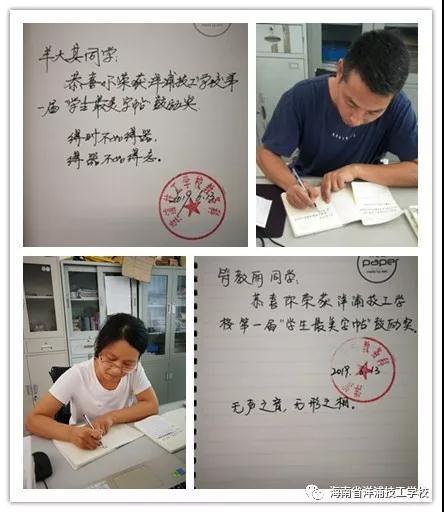 羊大荣同学:
恭喜你荣获洋浦技工学校第
一届"学生最美字帖"鼓励奖.
得时不如得器,
得器不如得志。
2019.6.13
paper
教丽同学:
恭喜你荣获洋浦技工学
校第一届"学生最美字帖"鼓励奖.
2019.6.13
无声之音,无形之相.
海南省洋浦技工学校